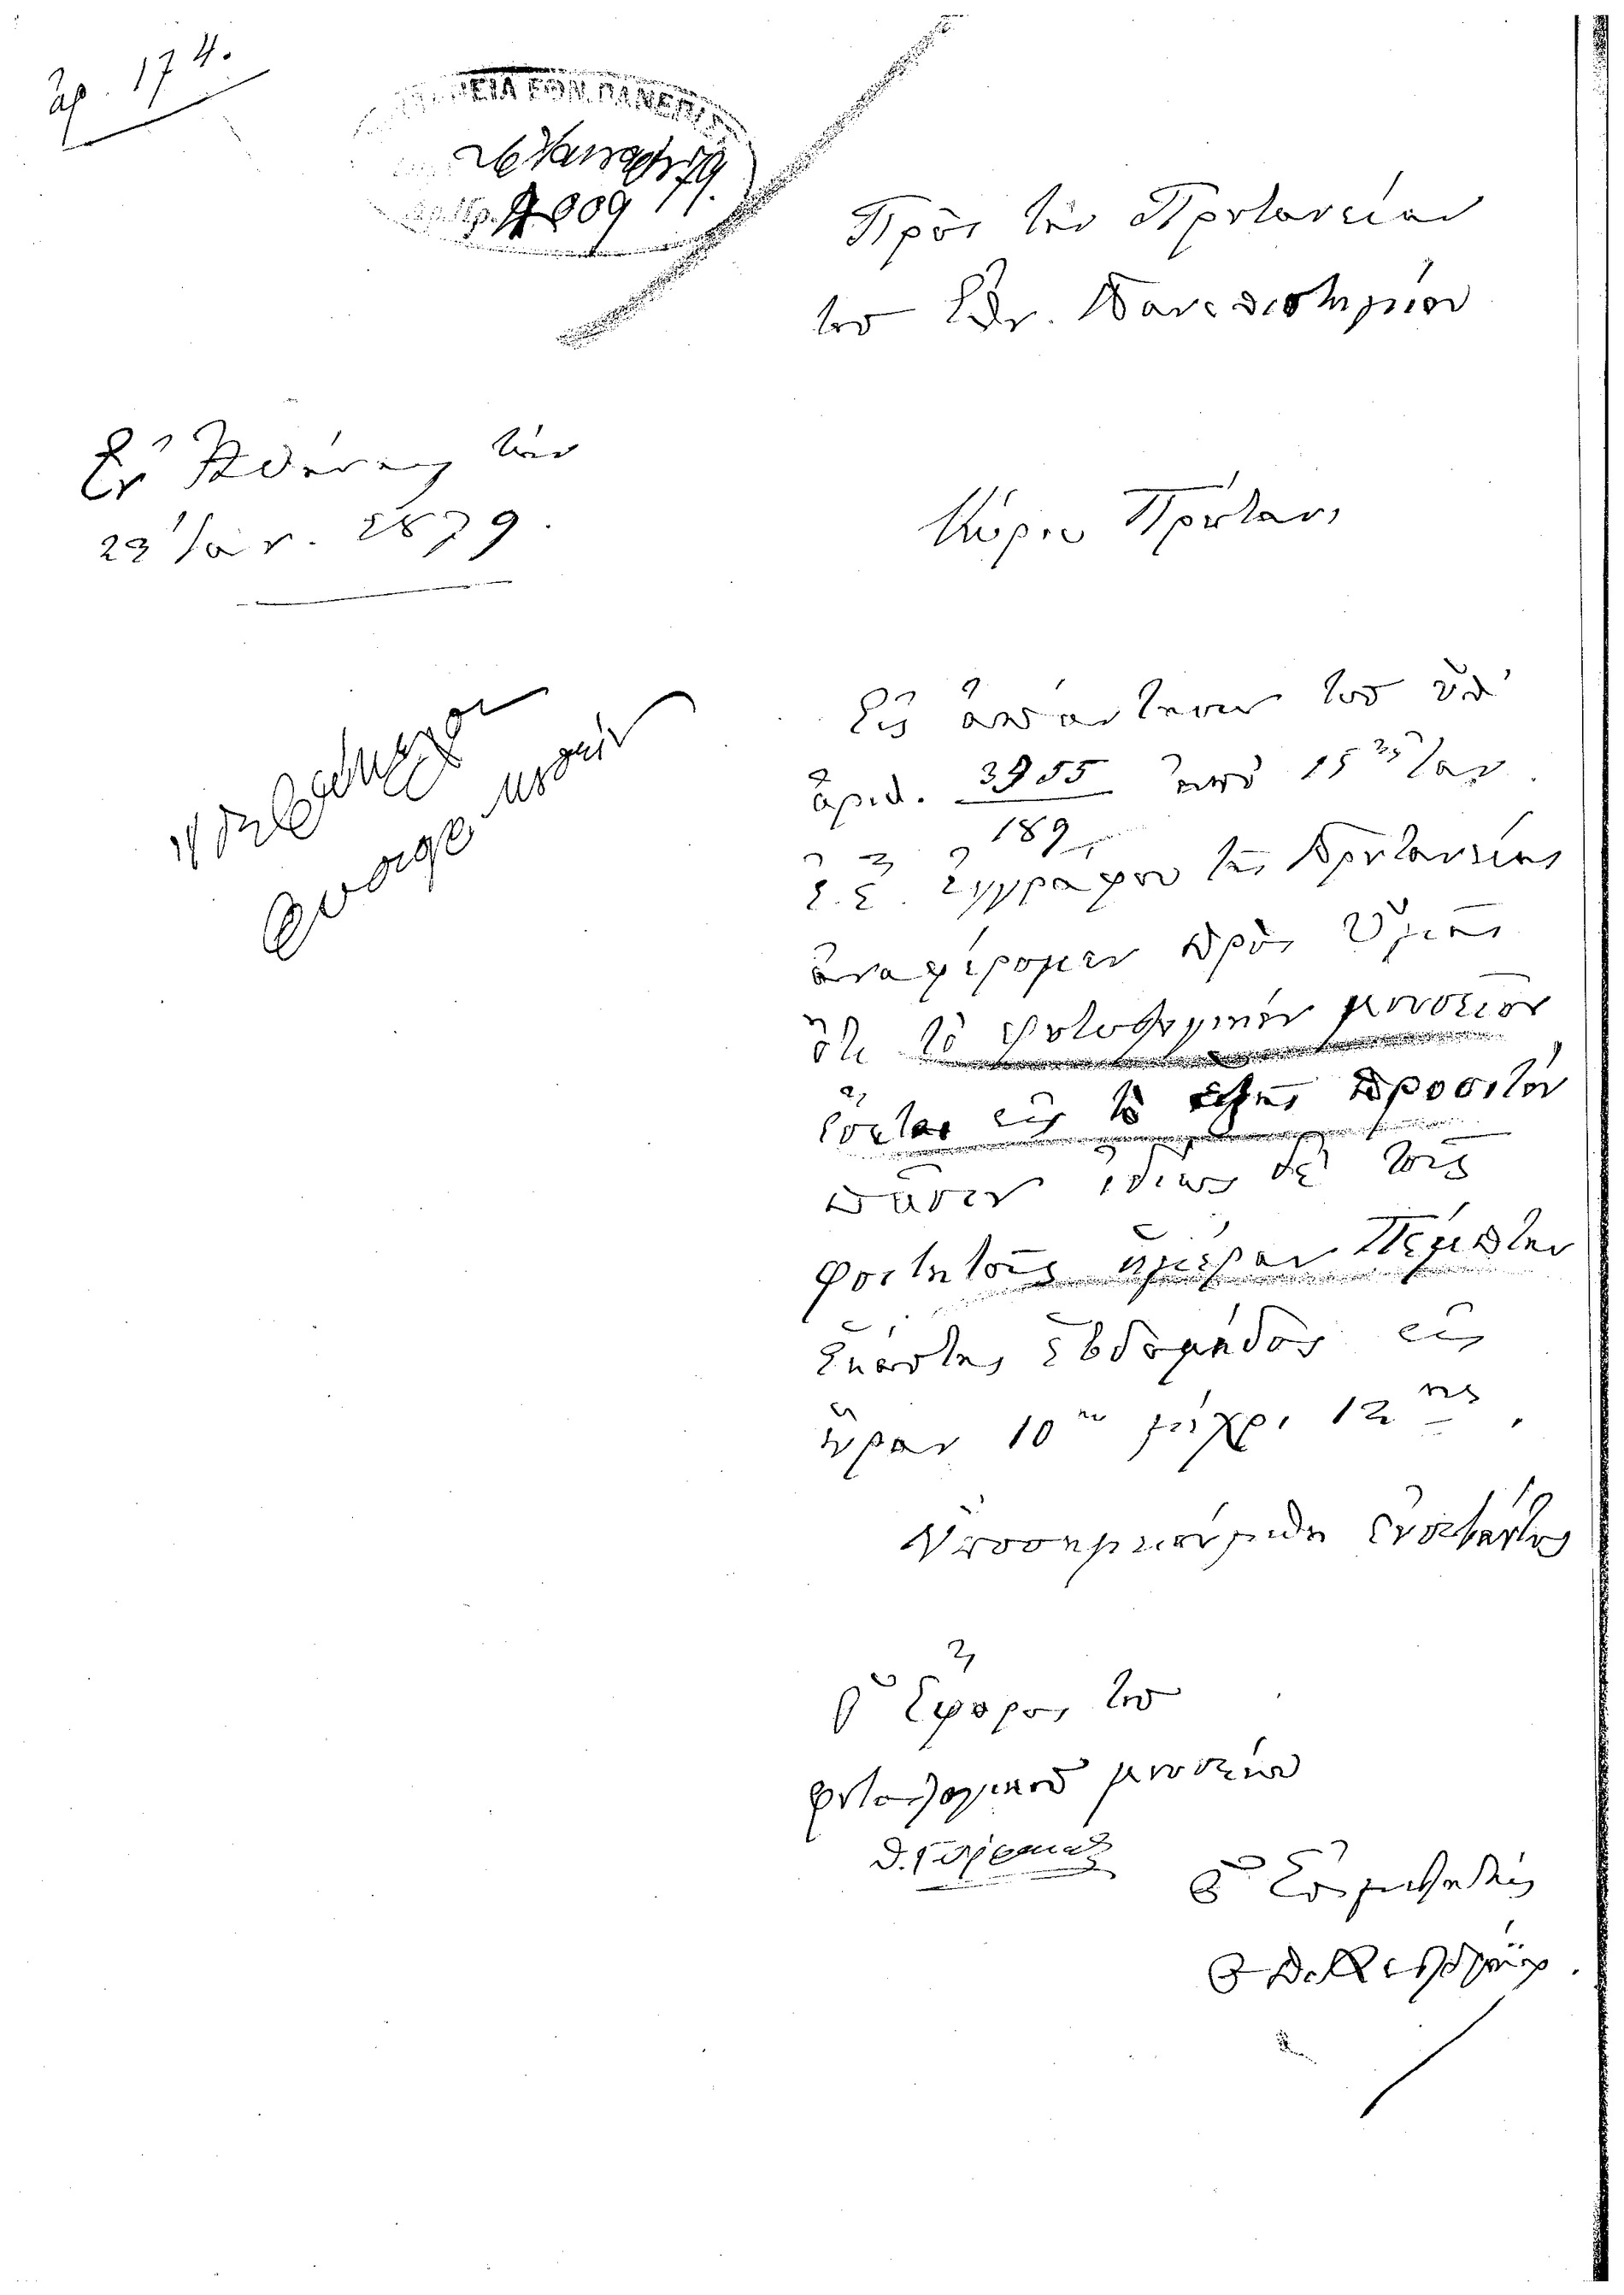 ἀρ. 174.
ΠΡΥΤΑΝΕΙΑ ΕΘΝ. ΠΑΝΕΠΙΣΤ
26 Ἰανουαρ 79.
Πρὸς τὴν Πρυτανείαν
τοῦ Ἐθν. Πανεπιστημίου
Ἐν Ἀθήναις τὴν
23 Ἰαν. 1879.
Κύριε Πρύτανι
Εἰς ἀπάντησιν τοῦ ὑπ'
ἀριθ. 3955 ἀπὸ 15ης Ἰαν.
189
ἐ. ἔ. ἐγγράφου τῆς Πρυτανείας
ἀναφέρομεν πρὸς Ὑμᾶς
ὅτι τὸ φυτολογικὸν μουσεῖον
ἔσται εἰς τὸ ἑξῆς προσιτὸν
πᾶσιν ἰδίως δὲ τοῖς
φοιτηταῖς ἡμέραν Πέμπτην
ἑκάστης ἑβδομάδος εἰς
ὥραν 10ην μέχρι 12ης.
Ὑποσημειούμεθα εὐσεβάστως
Ὁ Ἔφορος τοῦ
φυτολογικοῦ μουσείου
Ὁ Ἐπιμελητὴς
Θ. Δε Χελδράϊχ.